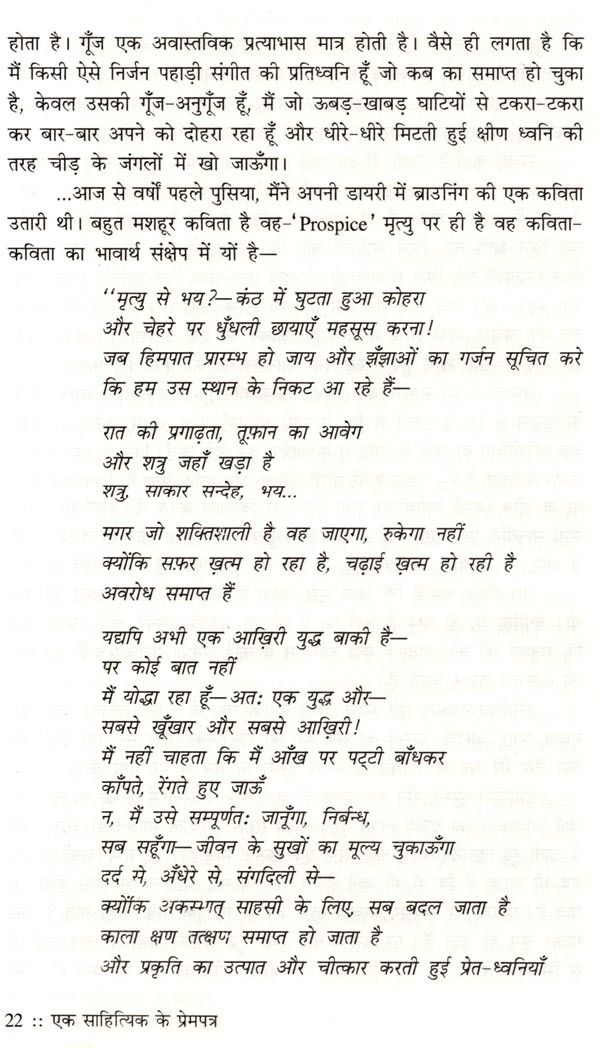 होता है। गूँज एक अवास्तविक प्रत्याभास मात्र होती है। वैसे ही लगता है कि
मैं किसी ऐसे निर्जन पहाड़ी संगीत की प्रतिध्वनि हूँ जो कब का समाप्त हो चुका
है, केवल उसकी गूँज-अनुगूँज हूँ, मैं जो ऊबड़-खाबड़ घाटियों से टकरा-टकरा
कर बार-बार अपने को दोहरा रहा हूँ और धीरे-धीरे मिटती हुई क्षीण ध्वनि की
तरह चीड़ के जंगलों में खो जाऊँगा।
...आज से वर्षों पहले पुसिया, मैंने अपनी डायरी में ब्राउनिंग की एक कविता
उतारी थी। बहुत मशहूर कविता है वह-‘Prospice’ मृत्यु पर ही है वह कविता-
कविता का भावार्थ संक्षेप में यों है—
“मृत्यु से भय?—कंठ में घुटता हुआ कोहरा
और चेहरे पर धुँधली छायाएँ महसूस करना!
जब हिमपात प्रारम्भ हो जाय और झँझाओं का गर्जन सूचित करे
कि हम उस स्थान के निकट आ रहे हैं—
रात की प्रगाढ़ता, तूफ़ान का आवेग
और शत्रु जहाँ खड़ा है
शत्रु, साकार सन्देह, भय...
मगर जो शक्तिशाली है वह जाएगा, रुकेगा नहीं
क्योंकि सफ़र ख़त्म हो रहा है, चढ़ाई ख़त्म हो रही है
अवरोध समाप्त हैं
यद्यपि अभी एक आख़िरी युद्ध बाकी है—
पर कोई बात नहीं
मैं योद्धा रहा हूँ—अतः एक युद्ध और—
सबसे खूँखार और सबसे आख़िरी!
मैं नहीं चाहता कि मैं आँख पर पट्टी बाँधकर
काँपते, रेंगते हुए जाऊँ
न, मैं उसे सम्पूर्णतः जानूँगा, निर्बन्ध,
सब सहूँगा—जीवन के सुखों का मूल्य चुकाऊँगा
दर्द से, अँधेरे से, संगदिली से—
क्योंकि अकस्मात् साहसी के लिए, सब बदल जाता है
काला क्षण तत्क्षण समाप्त हो जाता है
और प्रकृति का उत्पात और चीत्कार करती हुई प्रेत-ध्वनियाँ
22 :: एक साहित्यिक के प्रेमपत्र